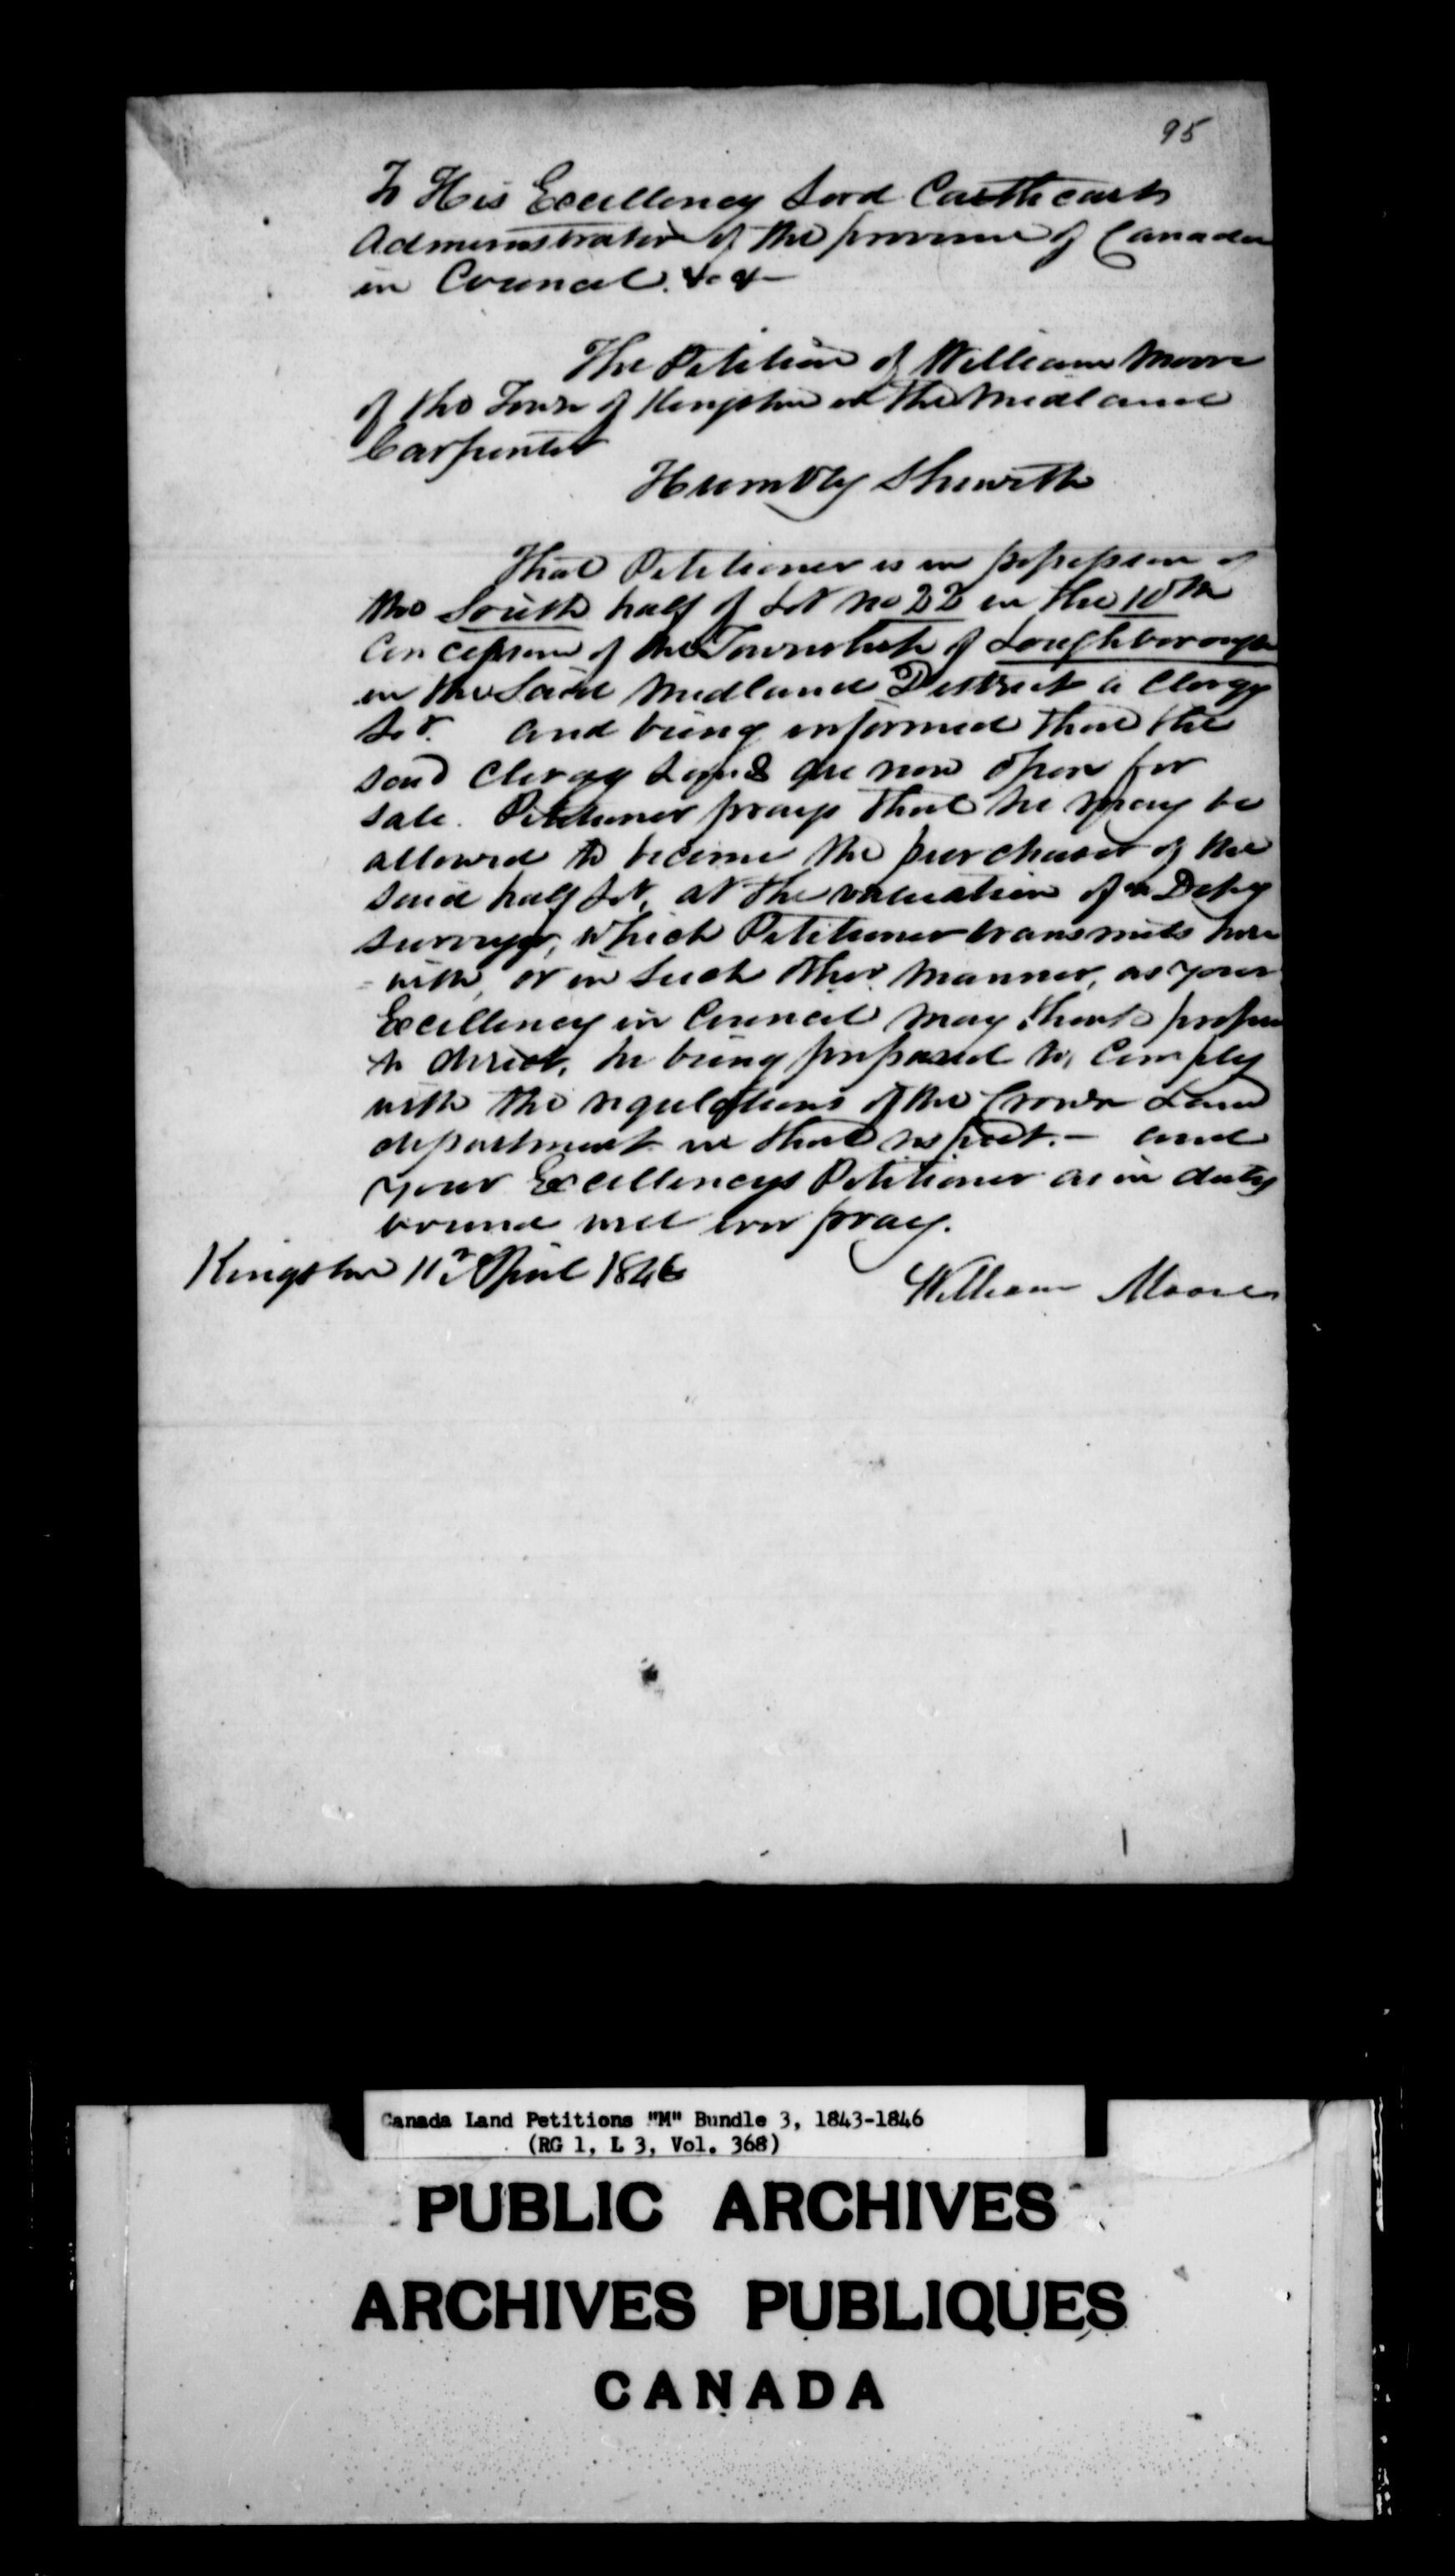 95
To His Excellency Lord Cathcart
Administrator of the province of Canada
in Council &c &
The Petition of William Moore
of the Town of Kingston in the Midland
Carpenter
Humbly Sheweth
That Petitioner is in possession of
the South half of Lot no 22 in the 10th
Concession of the Township of Loughborough
in the Said Midland District a Clergy
Lot. and being informed that the
said Clergy Lands are now open for
sale. Petitioner prays that he may be
allowed to become the purchaser of the
said half Lot, at the valuation of a Depy
surveyor, which Petitioner transmits here
-with, or in such other manner, as your
Excellency in Council may think proper
to direct, he being prepared to comply
with the regulations of the Crown Land
department in that respect. - and
your Excellencys Petitioner as in duty
bound will ever pray.
Kingston 11th April 1846
William Moore
Canada Land Petitions "M" Bundle 3, 1843-1846
(RG 1, L 3, Vol. 368)
PUBLIC ARCHIVES
ARCHIVES PUBLIQUES
CANADA